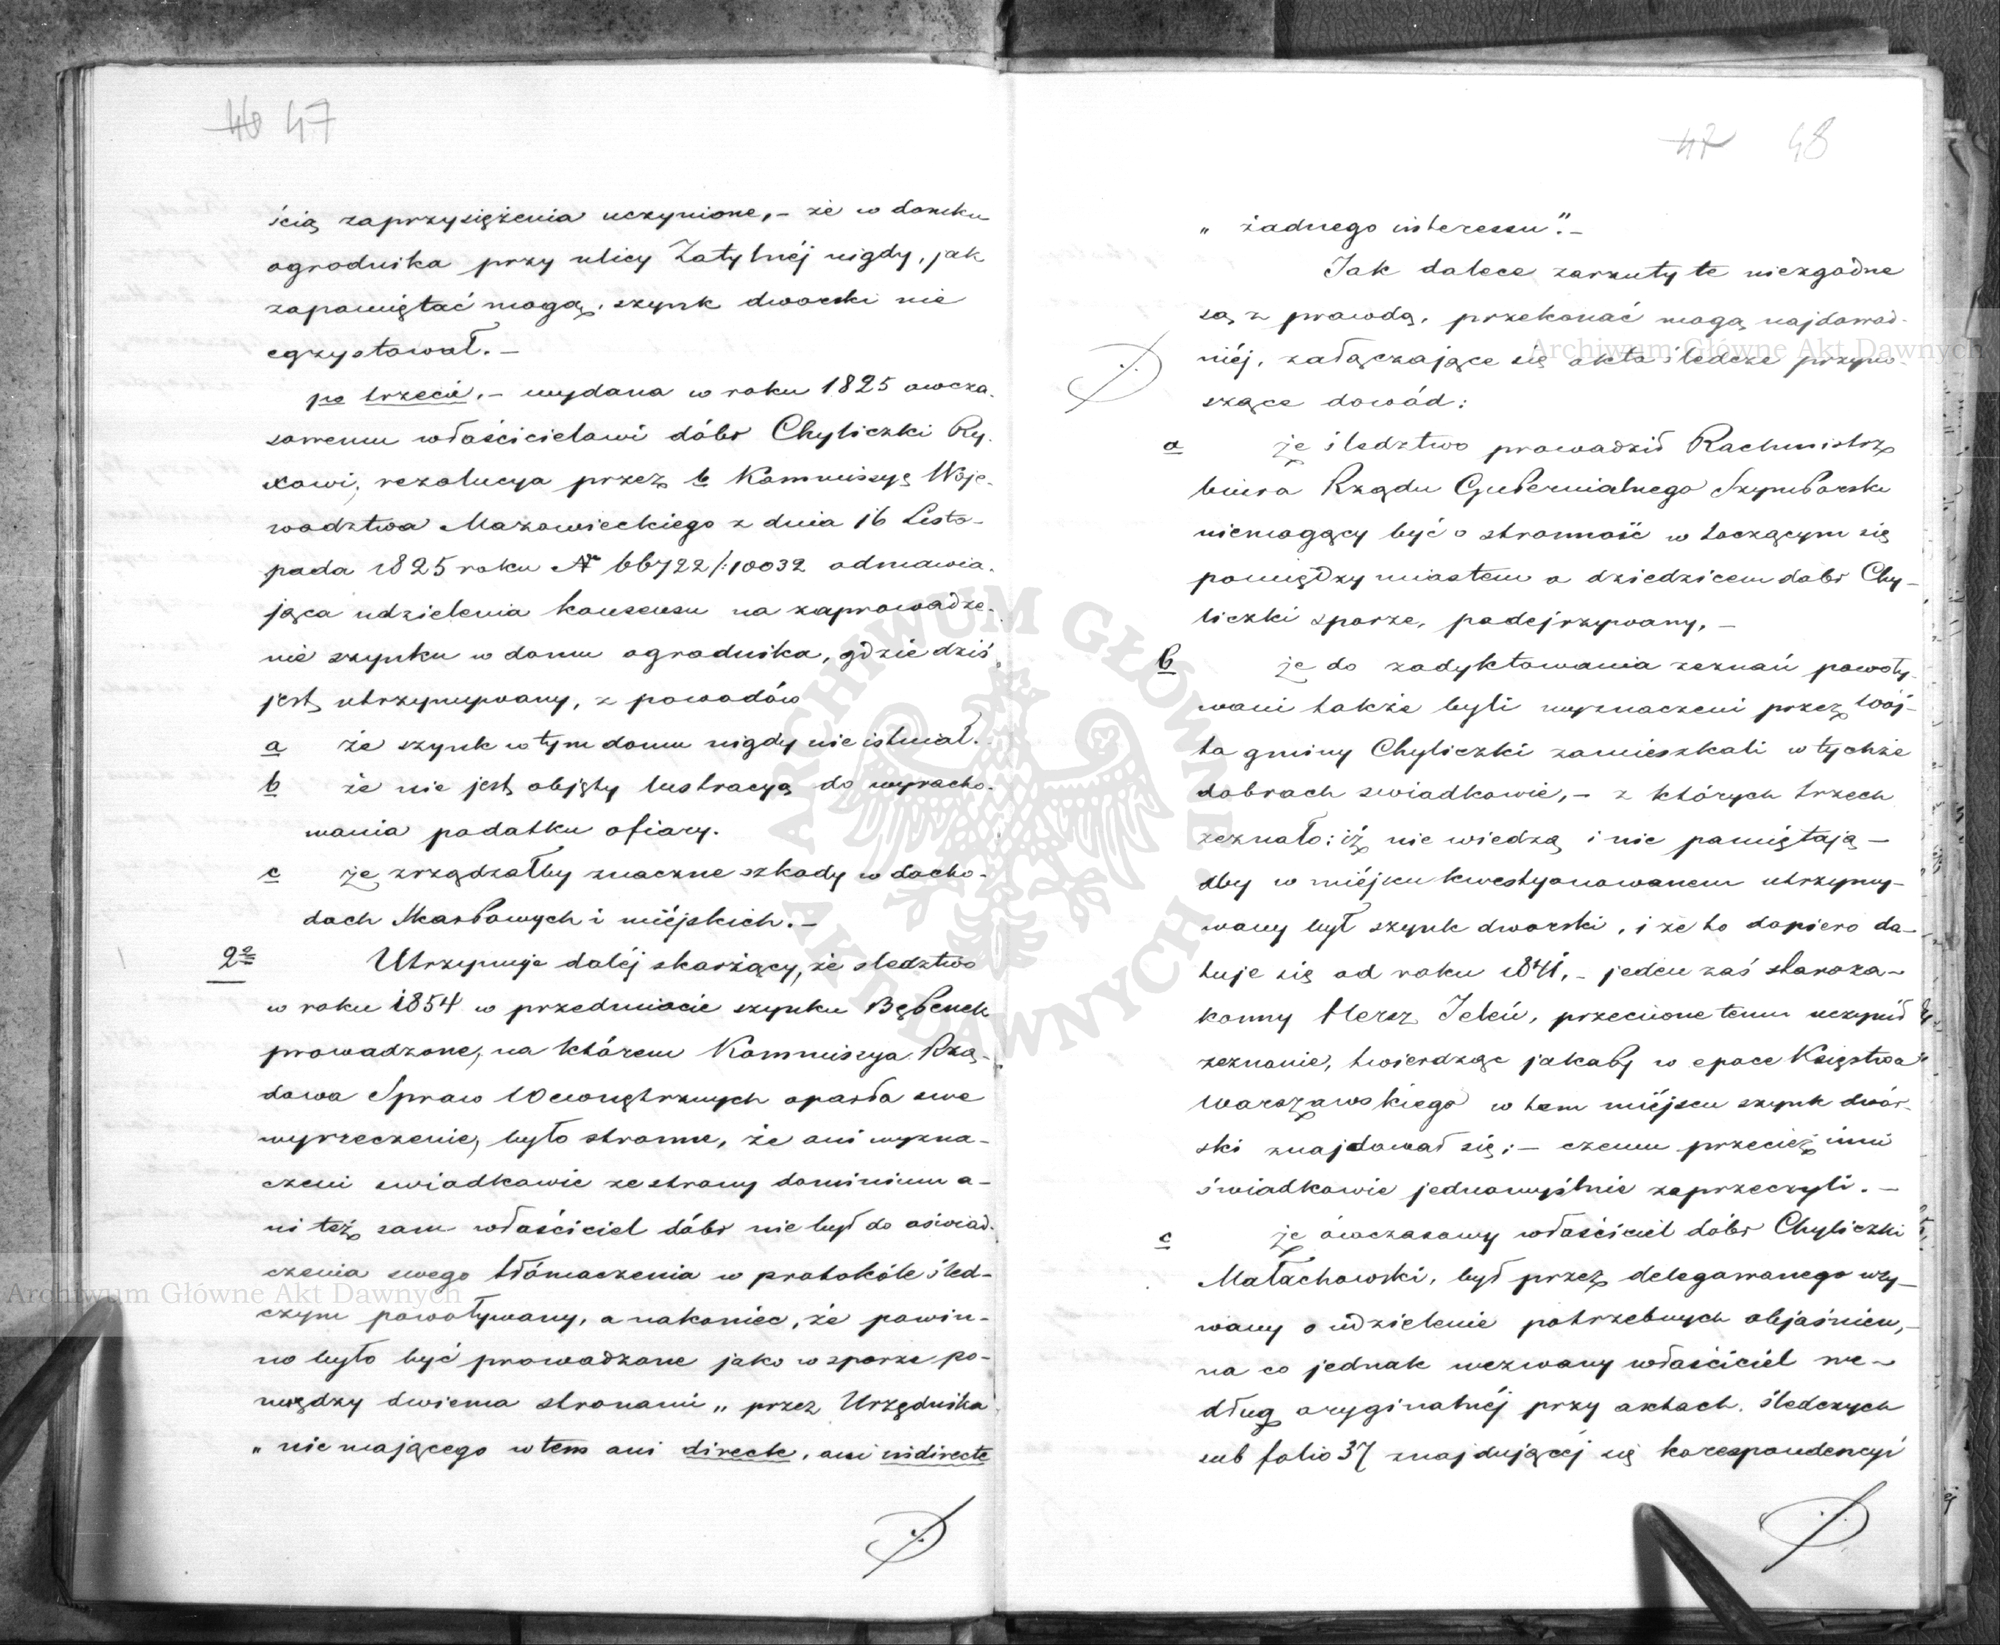 46 47
ścią zaprzysiężenia uczynione, - że w domku
ogrodnika przy ulicy Zatylnéj nigdy, jak
zapamiętać mogą, szynk dworski nie
egzystował. -
po trzecie, - wydana w roku 1825 owcza-
sowemu właścicielowi dóbr Chyliczki Ry-
xowi, rezolucya przez b Kommissyę Woje-
wodztwa Mazowieckiego z dnia 16 Listo-
pada 1825 roku Nr 66722/:10032 odmawia-
jąca udzielenia konsensu na zaprowadze-
nie szynku w domu ogrodnika, gdzie dziś
jest utrzymywany, z powodów
a że szynk w tym domu nigdy nie istniał.
b że nie jest objęty lustracyą do wyracho-
wania podatku ofiary.
c że zrządzałby znaczne szkody w docho-
dach Skarbowych i miéjskich. -
2re Utrzymuje daléj skarżący, że sledztwo
w roku 1854 w przedmiocie szynku Bębenek
prowadzone, na którem Kommissya Rzą-
dowa Spraw Wewnętrznych oparła swe
wyrzeczenie, było stronne, że ani wyzna-
czeni swiadkowie ze strony dominium a-
ni też sam właściciel dóbr nie był do oświad-
czenia swego tłómaczenia w protokóle śled-
czym powoływany, a nakoniec, że powin-
no było być prowadzone jako w sporze po-
między dwiema stronami „ przez Urzędnika
„ nie mającego w tem ani directe, ani indirecte
47 48
„ żadnego interessu". -
Jak dalece zarzuty te niezgodne
są z prawdą, przekonać mogą najdowod-
niéj, załączające się akta śledcze przyno-
szące dowód:
a że śledztwo prowadził Rachmistrz
biura Rządu Gubernialnego Szymborski
niemogący być o stronność w toczącym się
pomiędzy miastem a dziedzicem dóbr Chy-
liczki sporze, podejrzywany, -
b że do zadyktowania zeznań powoły-
wani także byli wyznaczeni przez Wój-
ta gminy Chyliczki zamieszkali w tychże
dobrach swiadkowie, - z których trzech
zeznało: iż nie wiedzą i nie pamiętają -
aby w miéjscu kwestyonowanem utrzymy-
wany był szynk dworski, i że to dopiero da-
tuje się od roku 1841, - jeden zaś staroza-
konny Hersz Jeleń, przeciwne temu uczynił
zeznanie, twierdząc jakoby w epoce Księstwa
Warszawskiego w tem miéjscu szynk dwór-
ski znajdował się; - czemu przecież inni
świadkowie jednomyślnie zaprzeczyli. -
c że ówczasowy właściciel dóbr Chyliczki
Małachowski, był przez delegowanego wzy-
wany o udzielenie potrzebnych objaśnień, -
na co jednak wezwany właściciel we-
dług oryginalnéj przy aktach śledczych
sub folio 37 znajdującéj się korespondencyi
Archiwum Główne Akt Dawnych
Archiwum Główne Akt Dawnych
ARCHIWUM GŁÓWNE AKT DAWNYCH